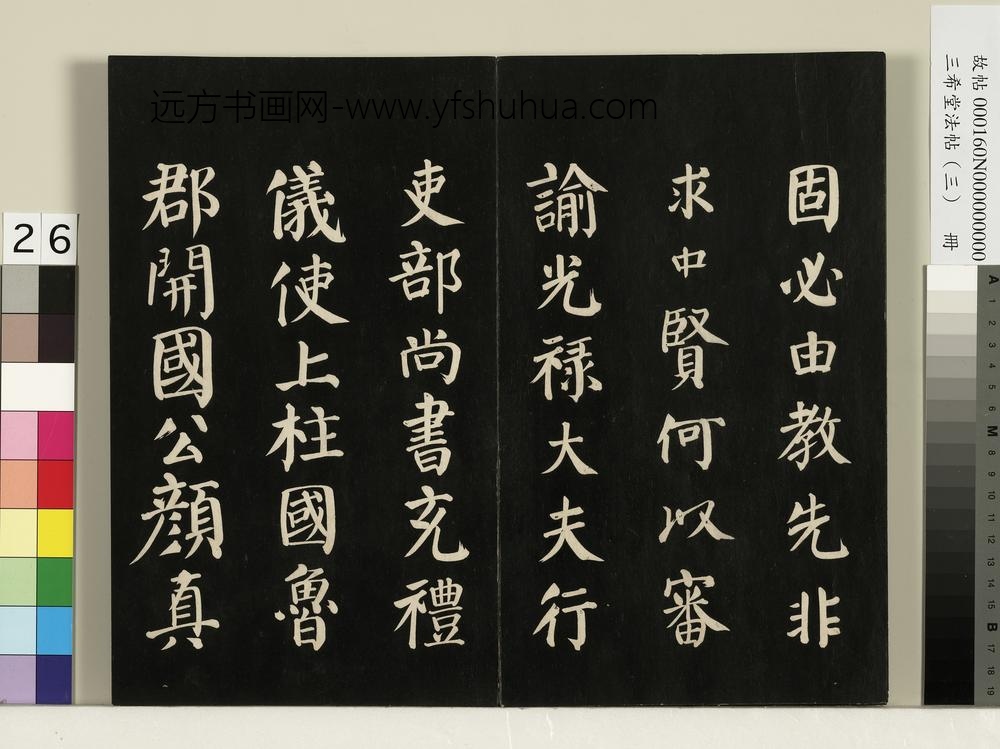 远方书画网-www.yfshuhua.com
故帖 000160N000000000
三希堂法帖（三） 冊
固必由教先非
求中賢何以審
諭光禄大夫行
吏部尚書充禮
儀使上柱國魯
郡開國公顔真
26
A 1 2 3 4 5 6 M 8 9 10 11 12 13 14 15 B 17 18 19